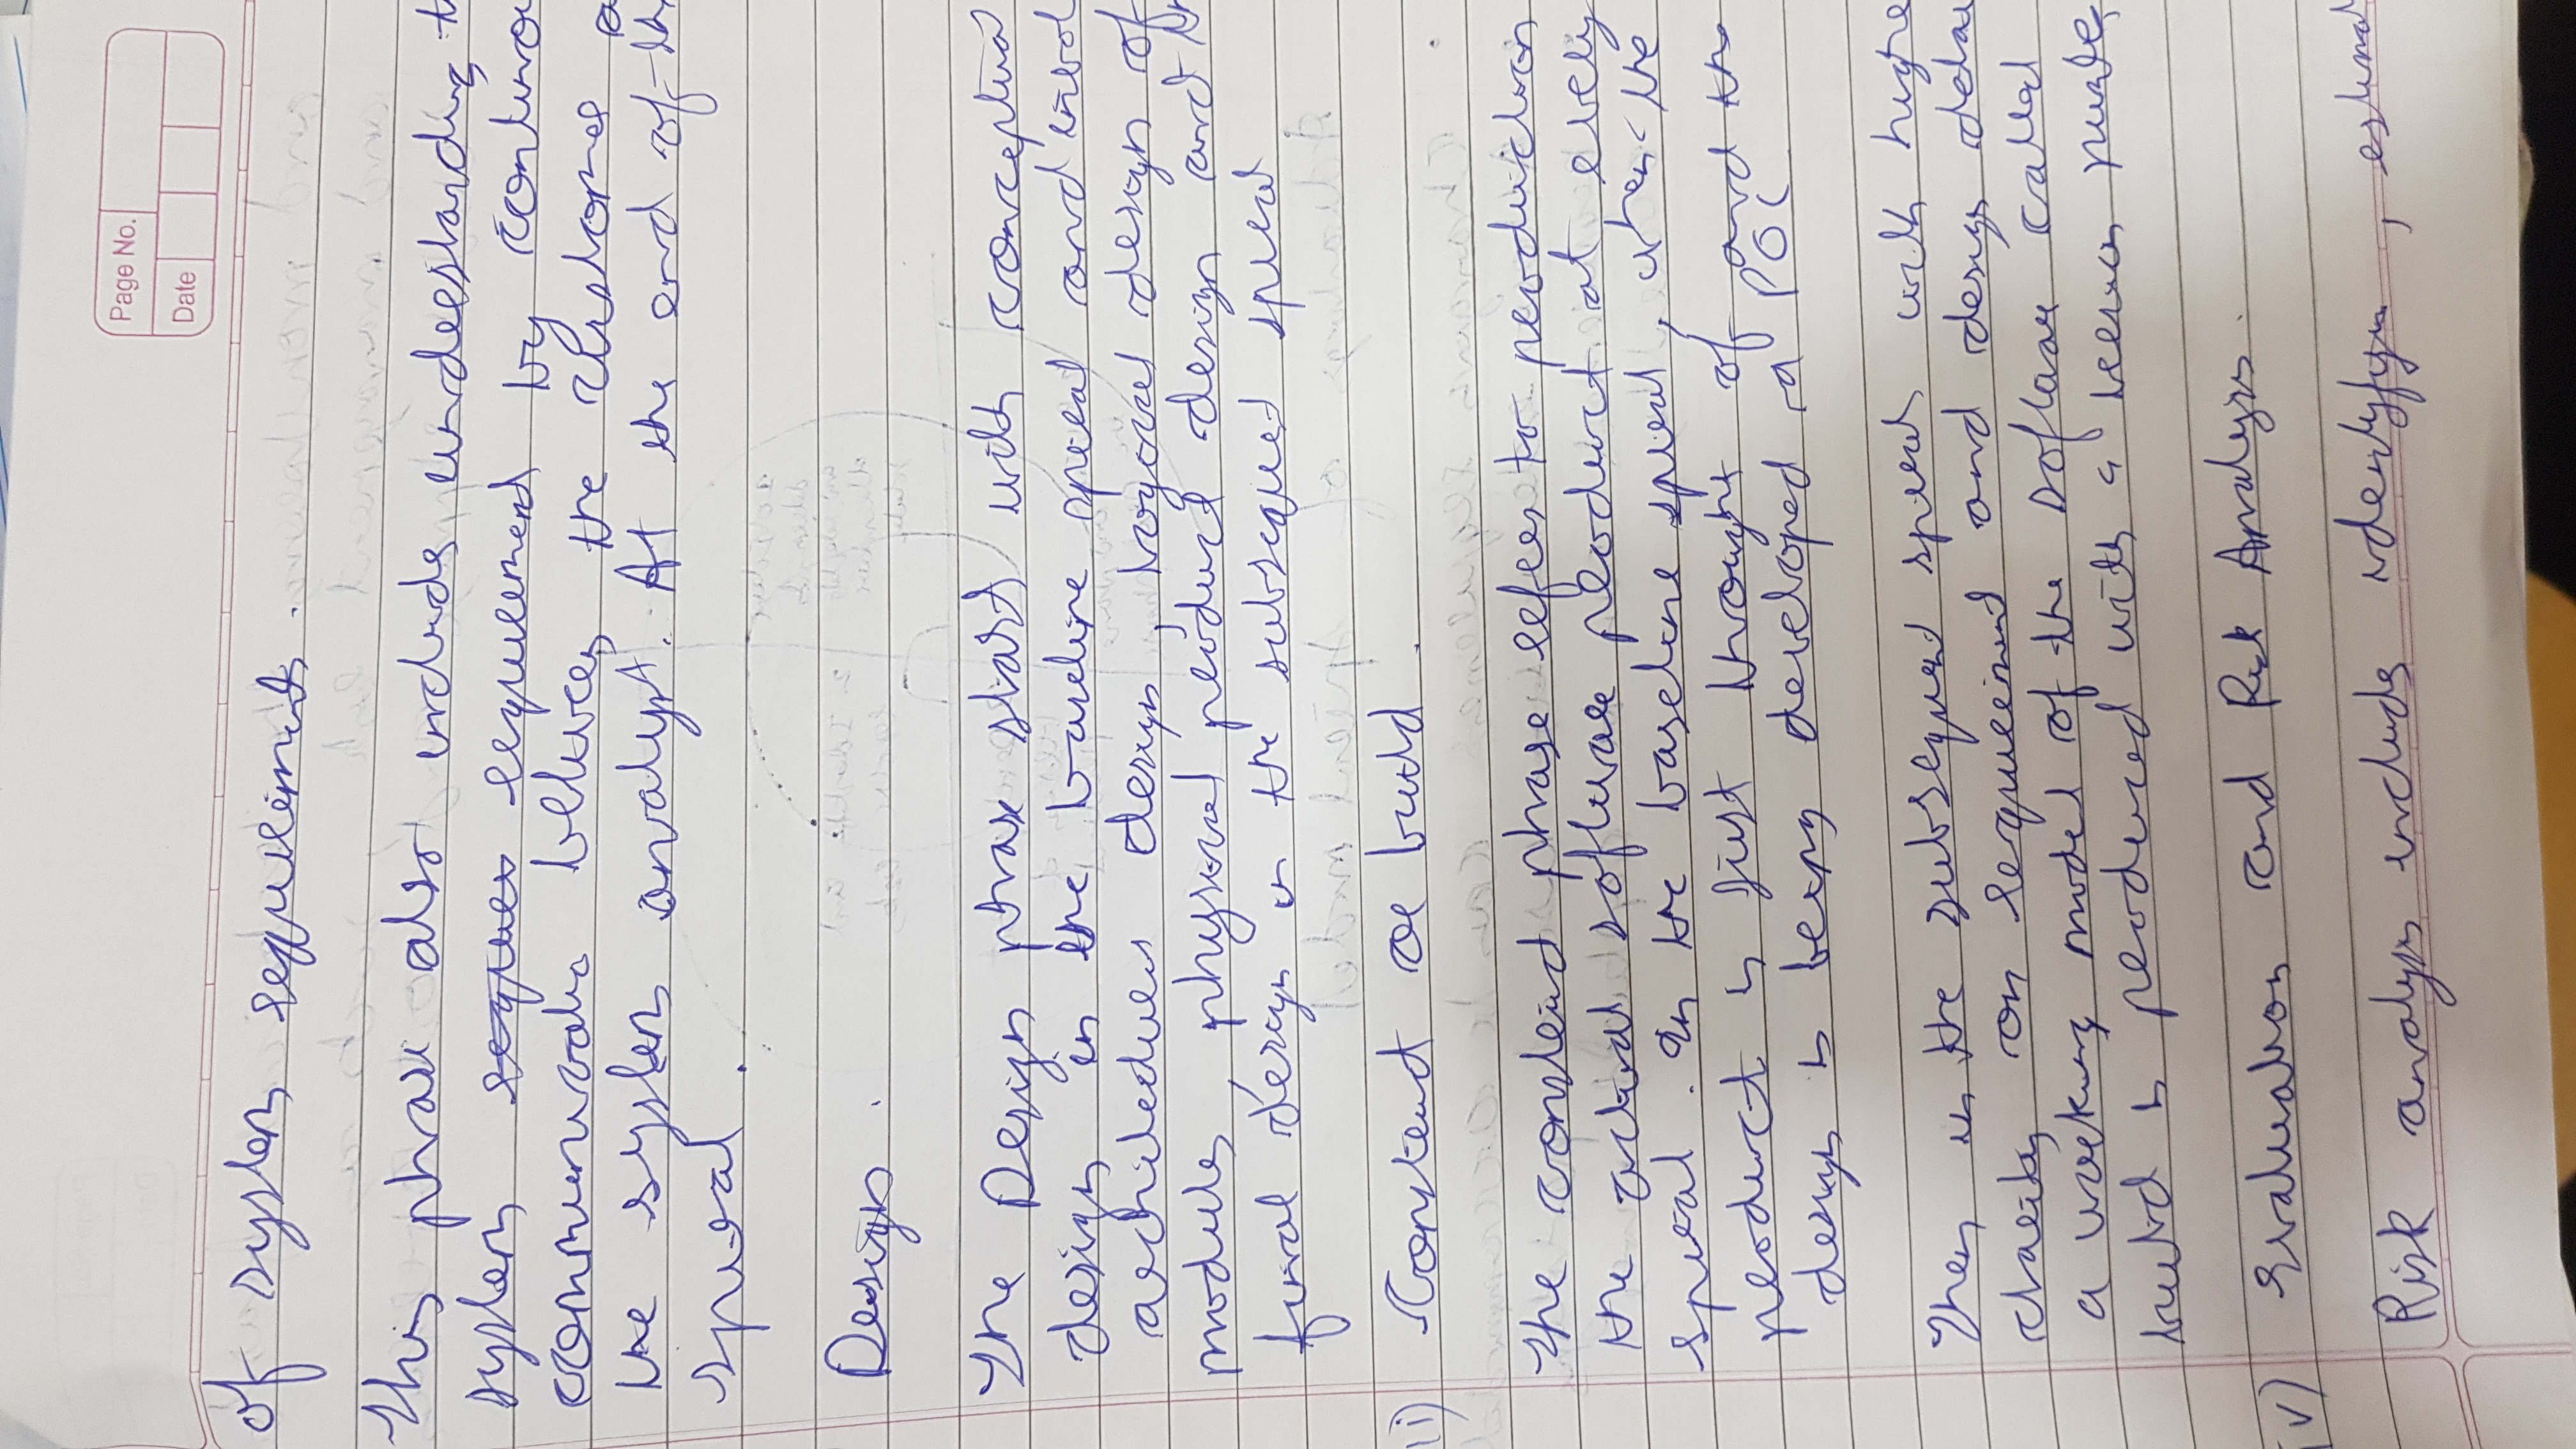 Page No.
Date
of system requirements.
This phase also includes understanding th
system requirement by continou
communicatio between the customer a
the system analyst. At the end of th
spiral.
Design.
The Design phase start with conceptual
design in the baseline spiral and invol
architectures design, logical design of
modules, physical product design and th
final design in the subsequent spiral
ii) Construct or build.
The construct phase refers to production
the actual software product at every
spiral. In the baseline spiral, when the
product is just thought of and the
design is being developed a POC
Then in the subsequent spirals with highe
clarity on requirement and design detai
a working model of the software called
build is produced with a version number
iv) Evaluation and Risk Analysis.
Risk analysis includes identifying, estimat